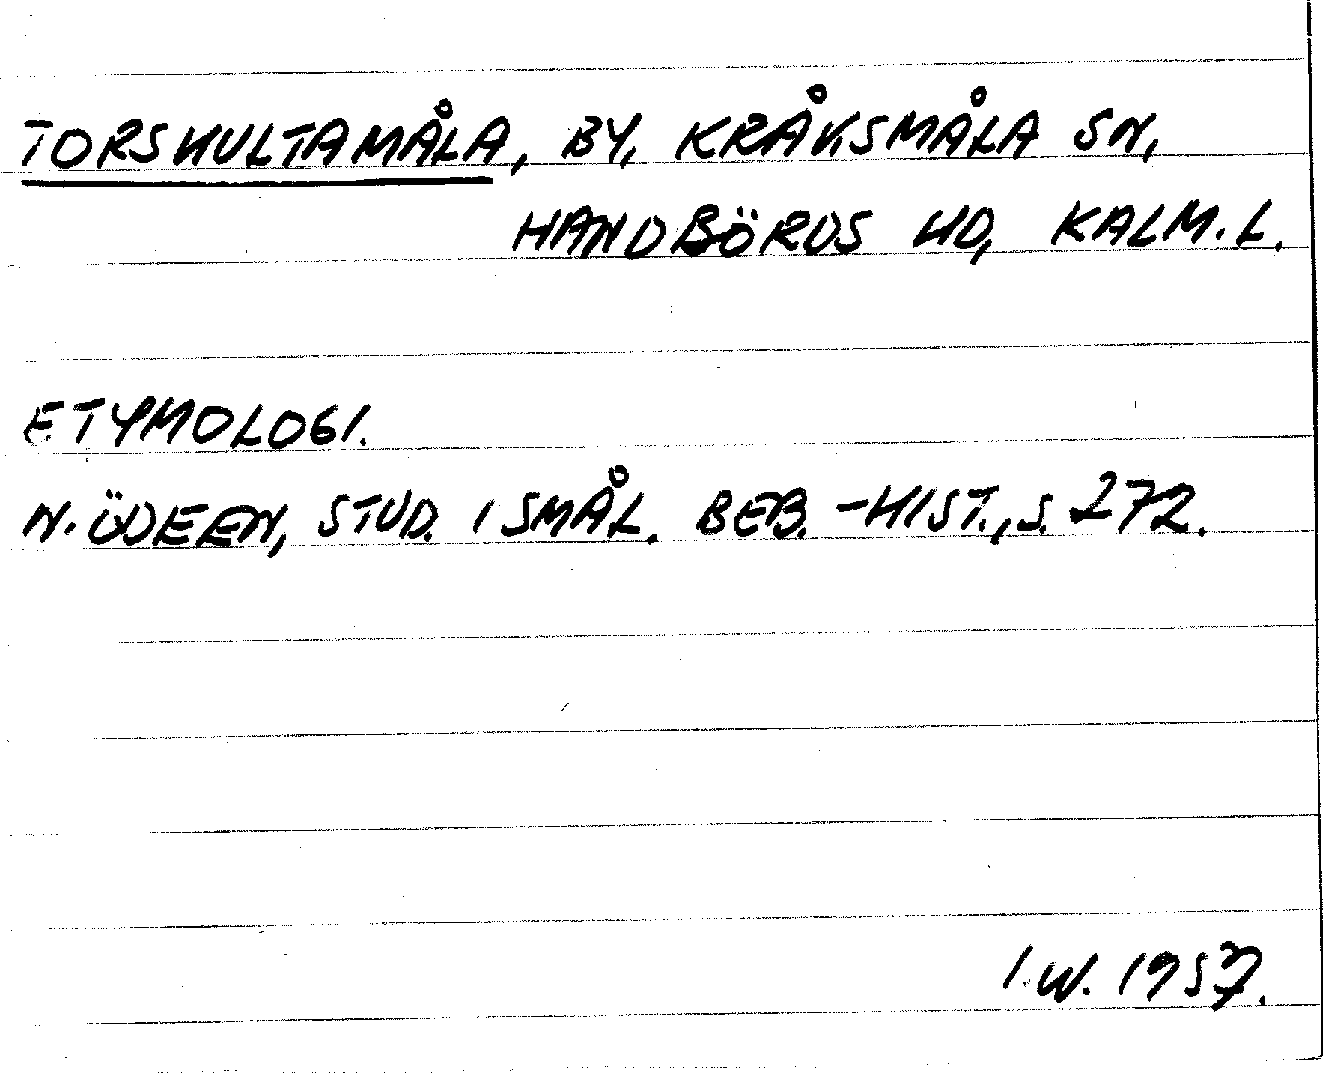 TORSHULTAMÅLA, BY, KRÅKSMÅLA SN,
HANDBÖRDS HD, KALM. L.
ETYMOLOGI.
N. ÖDEEN, STUD. I SMÅL. BEB.-HIST., S. 272.
I.W. 1957.